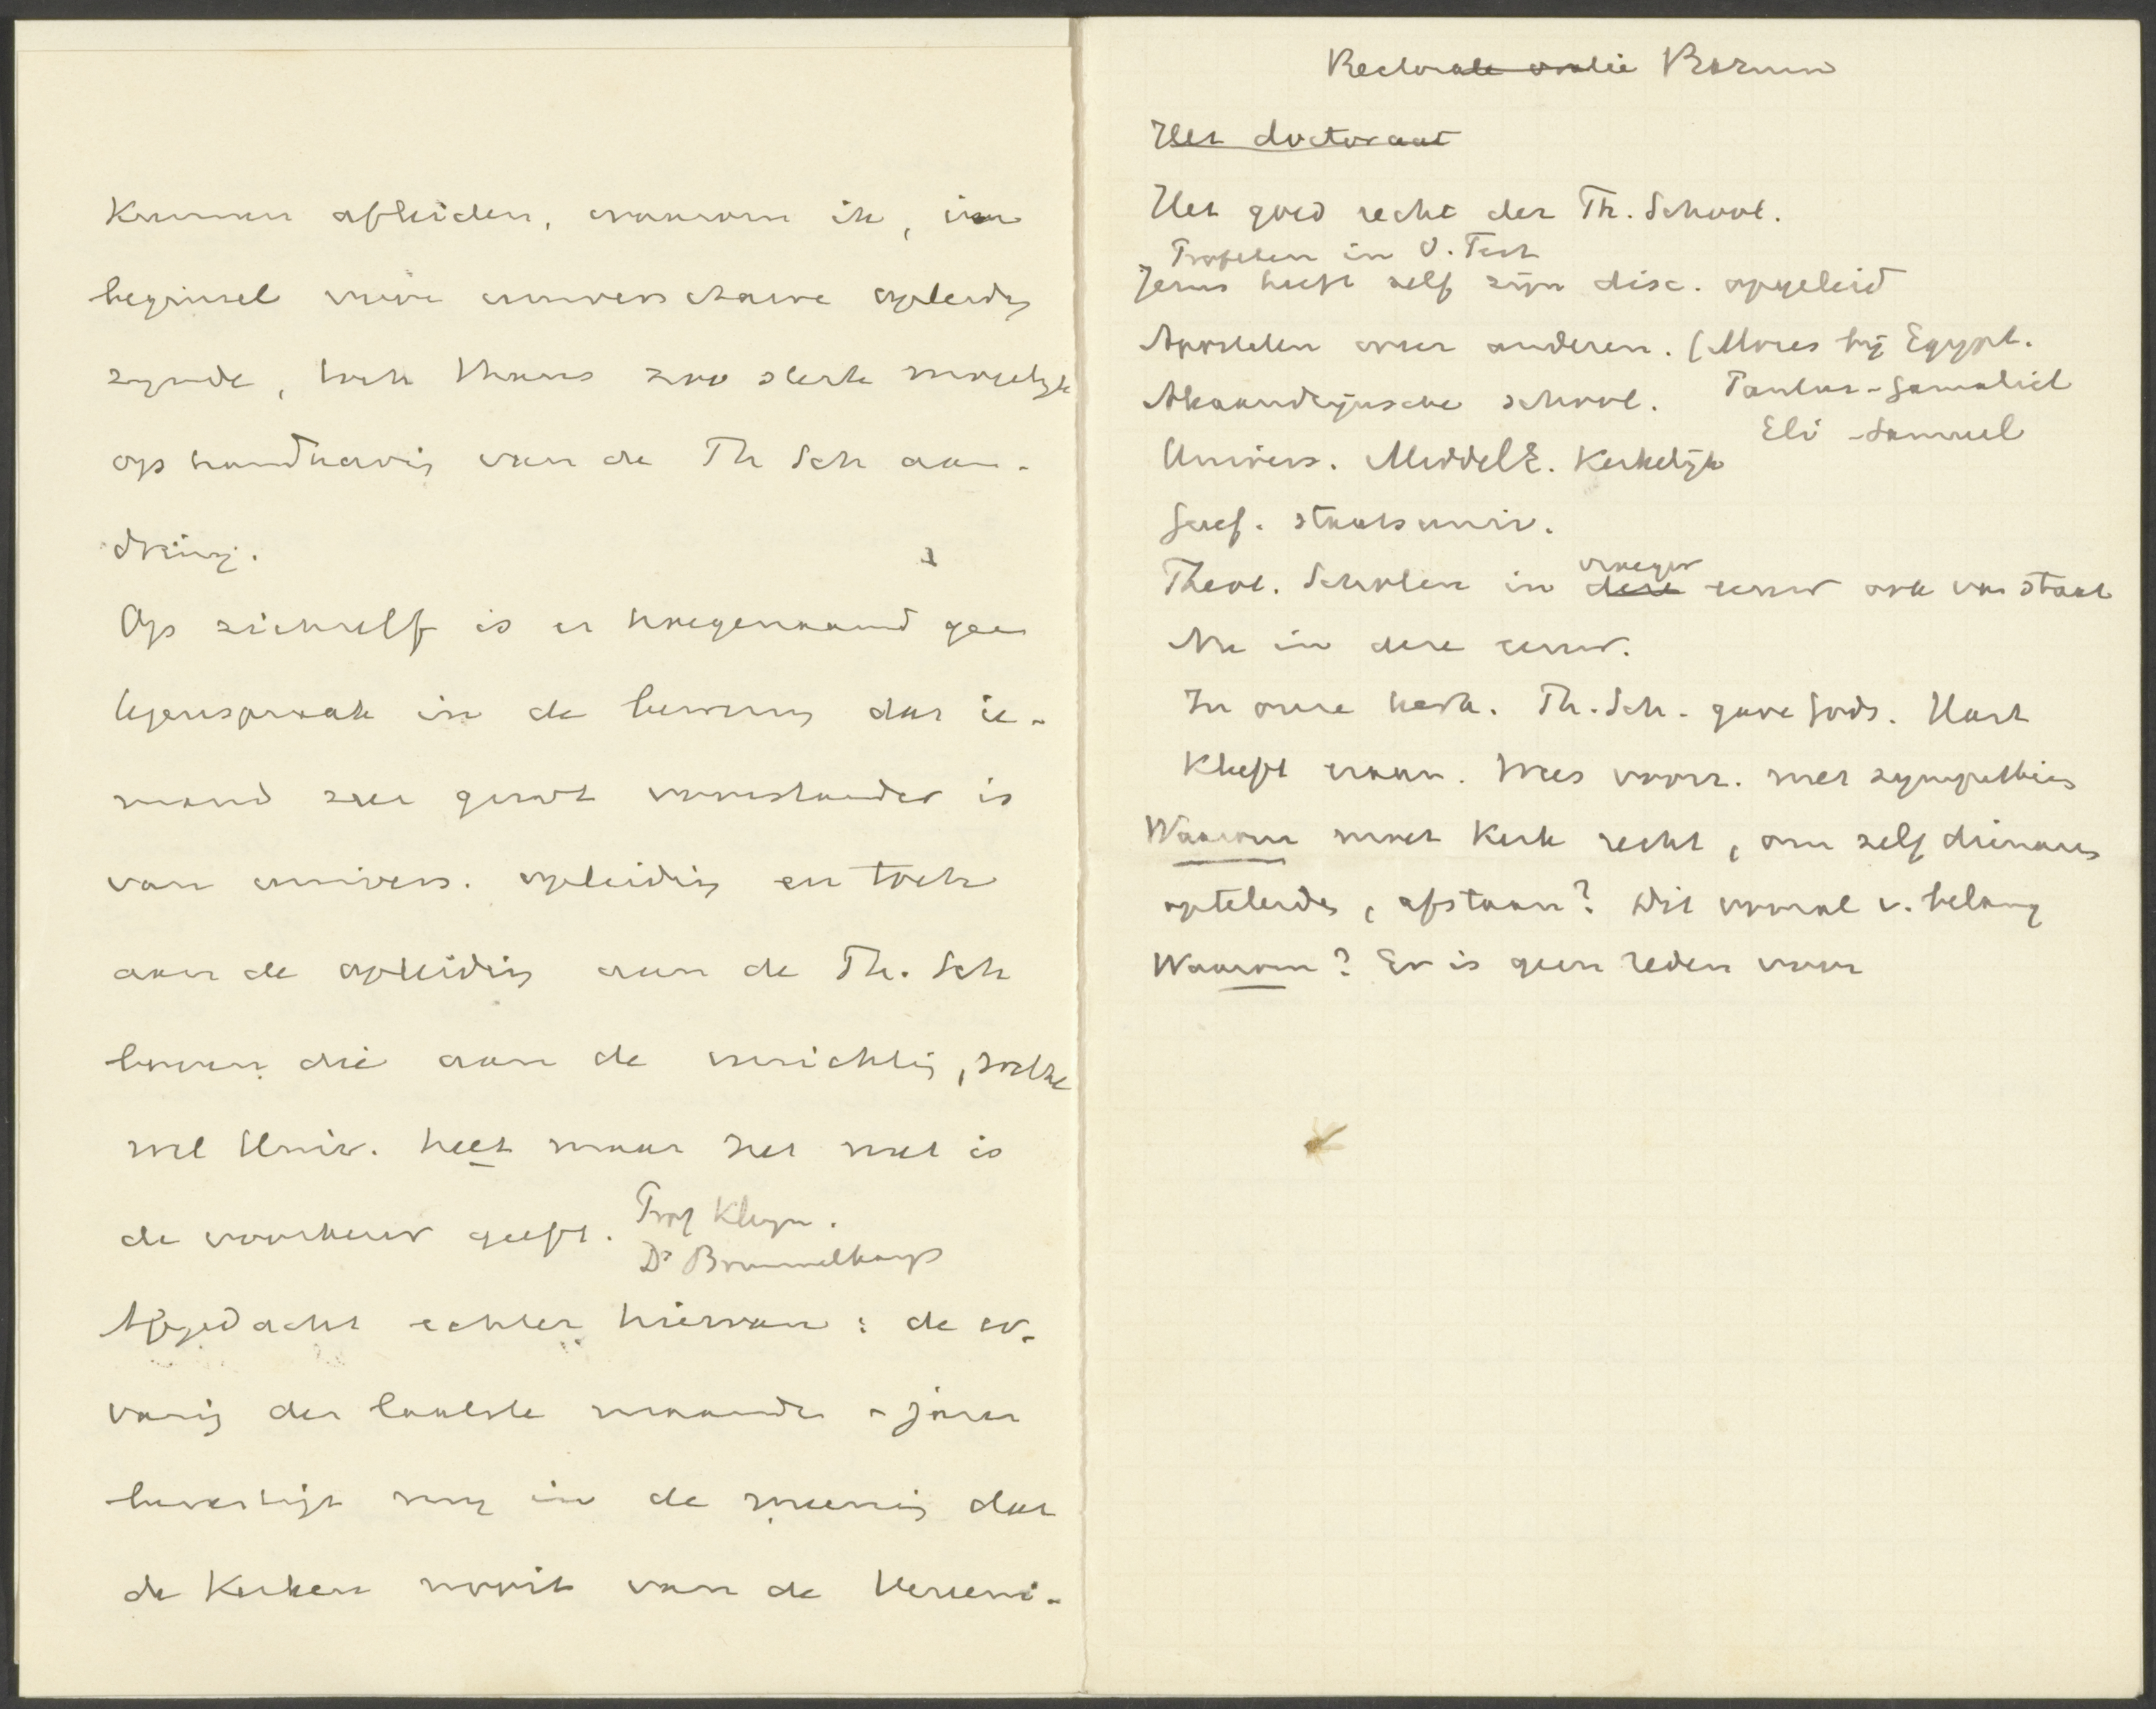 Kunnen afleiden, waarom ik, in
beginsel vóór univers. opleidg
zynde, toch thans zoo sterk mogelyk
op handhavig van de Th Sch aan-
dring.
Op zichzelf is er hoegenaamd geen
tegenspraak in de bewerig dat ie-
mand zeer groot voorstander is
van univers. opleidig en toch
aan de opleidig aan de Th. Sch
boven die aan de inrichtig, welke
wel Univ. heet maar het niet is
de voorkeur geeft. Prof Kleyn.
Ds Brummelkamp
Afgedacht echter hiervan: de er-
varig der laatste maanden - jaren
bevestigt my in de meenig dat
de Kerken nooit van de Vereeni-
Rectorale oratie Bozuin
Het doctoraat
Het goed recht der Th. School.
Profeten in O. Test
Jezus heeft zelf zijn disc. opgeleid
Apostelen weer anderen. (Mozes bij Egypt.
Paulus - Gamaliel
Alexandrijnsche school.
Eli - Samuel
Univers. MiddelE. Kerkelijk
Geref. staatsuniv.
Theol. Scholen in deze vroeger eeuw ook van staat
Nu in deze eeuw.
In onze kerk. Th. Sch. gave Gods. Hart
kleeft eraan. Wees voorz. met sympathieën
Waarom moet Kerk recht, om zelf dienaars
opteleiden, afstaan? Dit vooral v. belang
Waarom? Er is geen reden voor